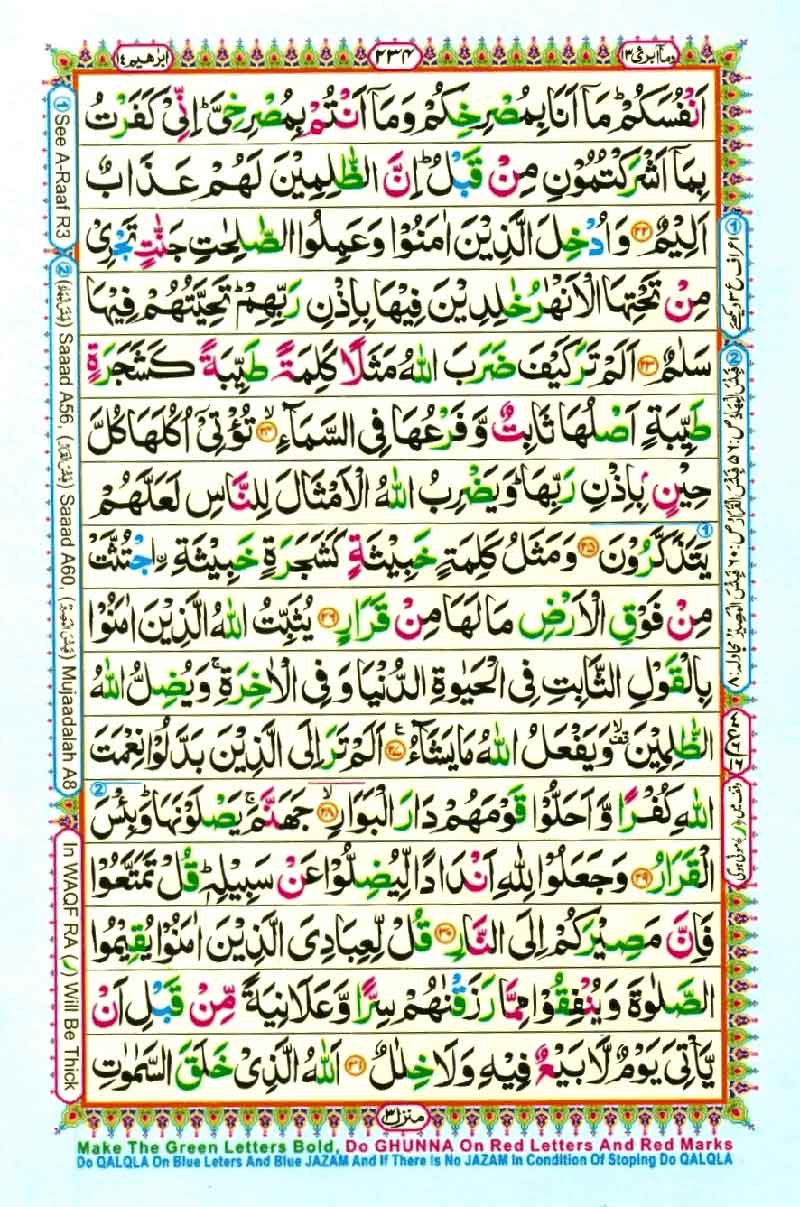 ابرٰهيم ١٤
٢٣٤
وما ابرئ ١٣
اَنْفُسَكُمْ ؕ مَاۤ اَنَا بِمُصْرِخِكُمْ وَمَاۤ اَنْتُمْ بِمُصْرِخِیَّ ؕ اِنِّیْ كَفَرْتُ
بِمَاۤ اَشْرَكْتُمُوْنِ مِنْ قَبْلُ ؕ اِنَّ الظّٰلِمِیْنَ لَهُمْ عَذَابٌ
اَلِیْمٌ ﴿۲۲﴾ وَاُدْخِلَ الَّذِیْنَ اٰمَنُوْا وَعَمِلُوا الصّٰلِحٰتِ جَنّٰتٍ تَجْرِیْ
مِنْ تَحْتِهَا الْاَنْهٰرُ خٰلِدِیْنَ فِیْهَا بِاِذْنِ رَبِّهِمْ ؕ تَحِیَّتُهُمْ فِیْهَا
سَلٰمٌ ﴿۲۳﴾ اَلَمْ تَرَ كَیْفَ ضَرَبَ اللّٰهُ مَثَلًا كَلِمَةً طَیِّبَةً كَشَجَرَةٍ
طَیِّبَةٍ اَصْلُهَا ثَابِتٌ وَّفَرْعُهَا فِی السَّمَآءِ ۙ﴿۲۴﴾ تُؤْتِیْۤ اُكُلَهَا كُلَّ
حِیْنٍۭ بِاِذْنِ رَبِّهَا ؕ وَیَضْرِبُ اللّٰهُ الْاَمْثَالَ لِلنَّاسِ لَعَلَّهُمْ
یَتَذَكَّرُوْنَ ﴿۲۵﴾ وَمَثَلُ كَلِمَةٍ خَبِیْثَةٍ كَشَجَرَةٍ خَبِیْثَةِ ۟اجْتُثَّتْ
مِنْ فَوْقِ الْاَرْضِ مَا لَهَا مِنْ قَرَارٍ ﴿۲۶﴾ یُثَبِّتُ اللّٰهُ الَّذِیْنَ اٰمَنُوْا
بِالْقَوْلِ الثَّابِتِ فِی الْحَیٰوةِ الدُّنْیَا وَفِی الْاٰخِرَةِ ۚ وَیُضِلُّ اللّٰهُ
الظّٰلِمِیْنَ ۙ وَیَفْعَلُ اللّٰهُ مَا یَشَآءُ ﴿۲۷﴾ اَلَمْ تَرَ اِلَی الَّذِیْنَ بَدَّلُوْا نِعْمَتَ
اللّٰهِ كُفْرًا وَّاَحَلُّوْا قَوْمَهُمْ دَارَ الْبَوَارِ ۙ﴿۲۸﴾ جَهَنَّمَ ۚ یَصْلَوْنَهَا ؕ وَبِئْسَ
الْقَرَارُ ﴿۲۹﴾ وَجَعَلُوْا لِلّٰهِ اَنْدَادًا لِّیُضِلُّوْا عَنْ سَبِیْلِهٖ ؕ قُلْ تَمَتَّعُوْا
فَاِنَّ مَصِیْرَكُمْ اِلَی النَّارِ ﴿۳۰﴾ قُلْ لِّعِبَادِیَ الَّذِیْنَ اٰمَنُوْا یُقِیْمُوا
الصَّلٰوةَ وَیُنْفِقُوْا مِمَّا رَزَقْنٰهُمْ سِرًّا وَّعَلَانِیَةً مِّنْ قَبْلِ اَنْ
یَّاْتِیَ یَوْمٌ لَّا بَیْعٌ فِیْهِ وَلَا خِلٰلٌ ﴿۳۱﴾ اَللّٰهُ الَّذِیْ خَلَقَ السَّمٰوٰتِ
منزل ٣
Make The Green Letters Bold, Do GHUNNA On Red Letters And Red Marks
Do QALQLA On Blue Leters And Blue JAZAM And If There Is No JAZAM In Condition Of Stoping Do QALQLA
① See A-Raaf R3
② Saaad A56, Saaad A60, Mujaadalah A8
In WAQF RA (ر) Will Be Thick